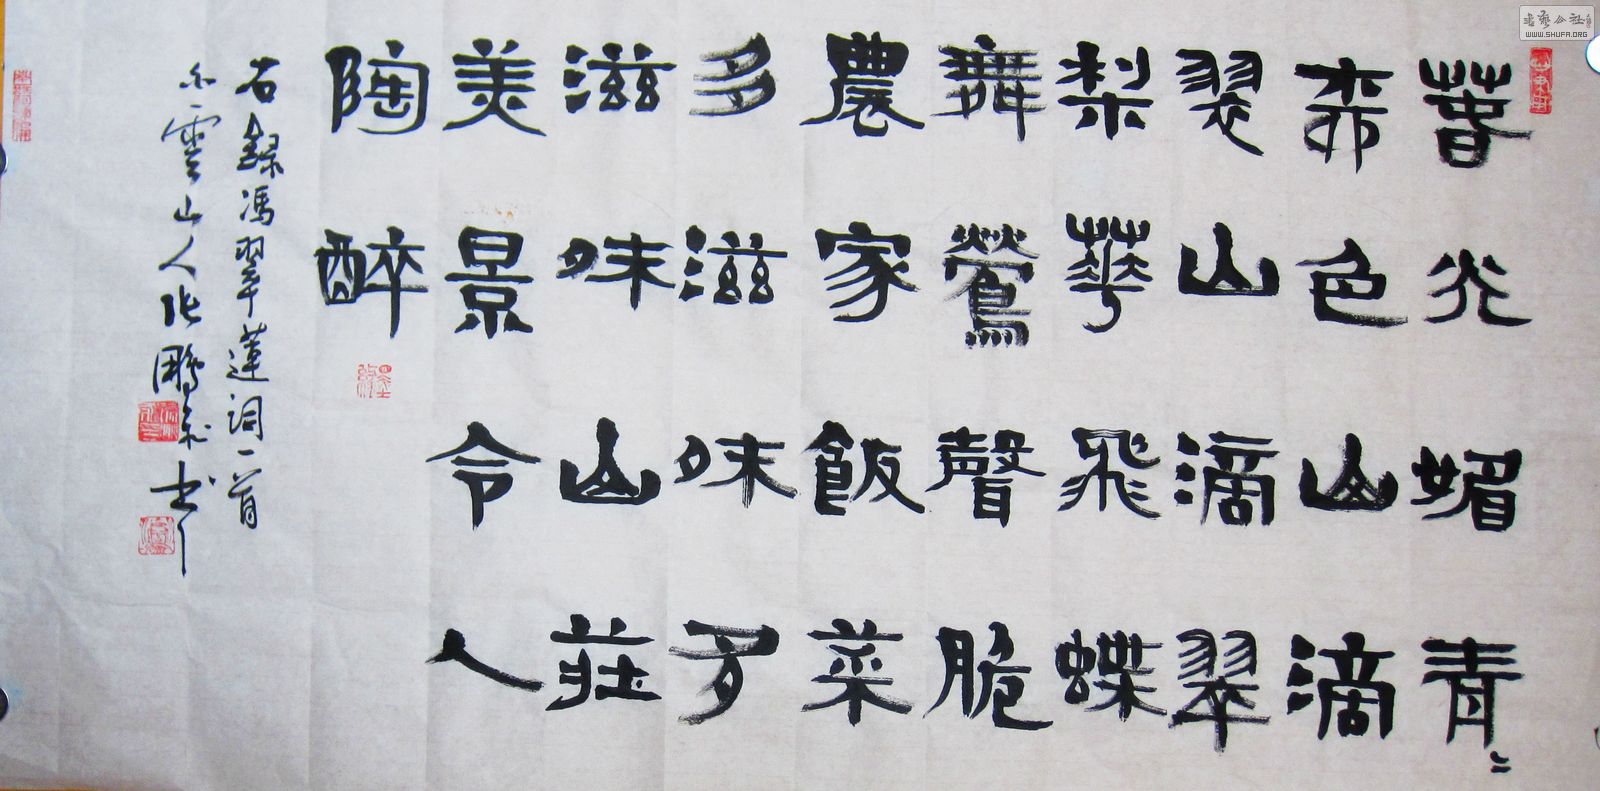 春光媚青〻
色山滴
翠山滴翠
梨華飛蝶
舞鶯聲脆
農家飯菜
多滋味多
滋味山莊
美景令人
陶醉
右錄馮翠蓮詞一首
雲山人張鵬書
書藝公社
WWW.SHUFA.ORG